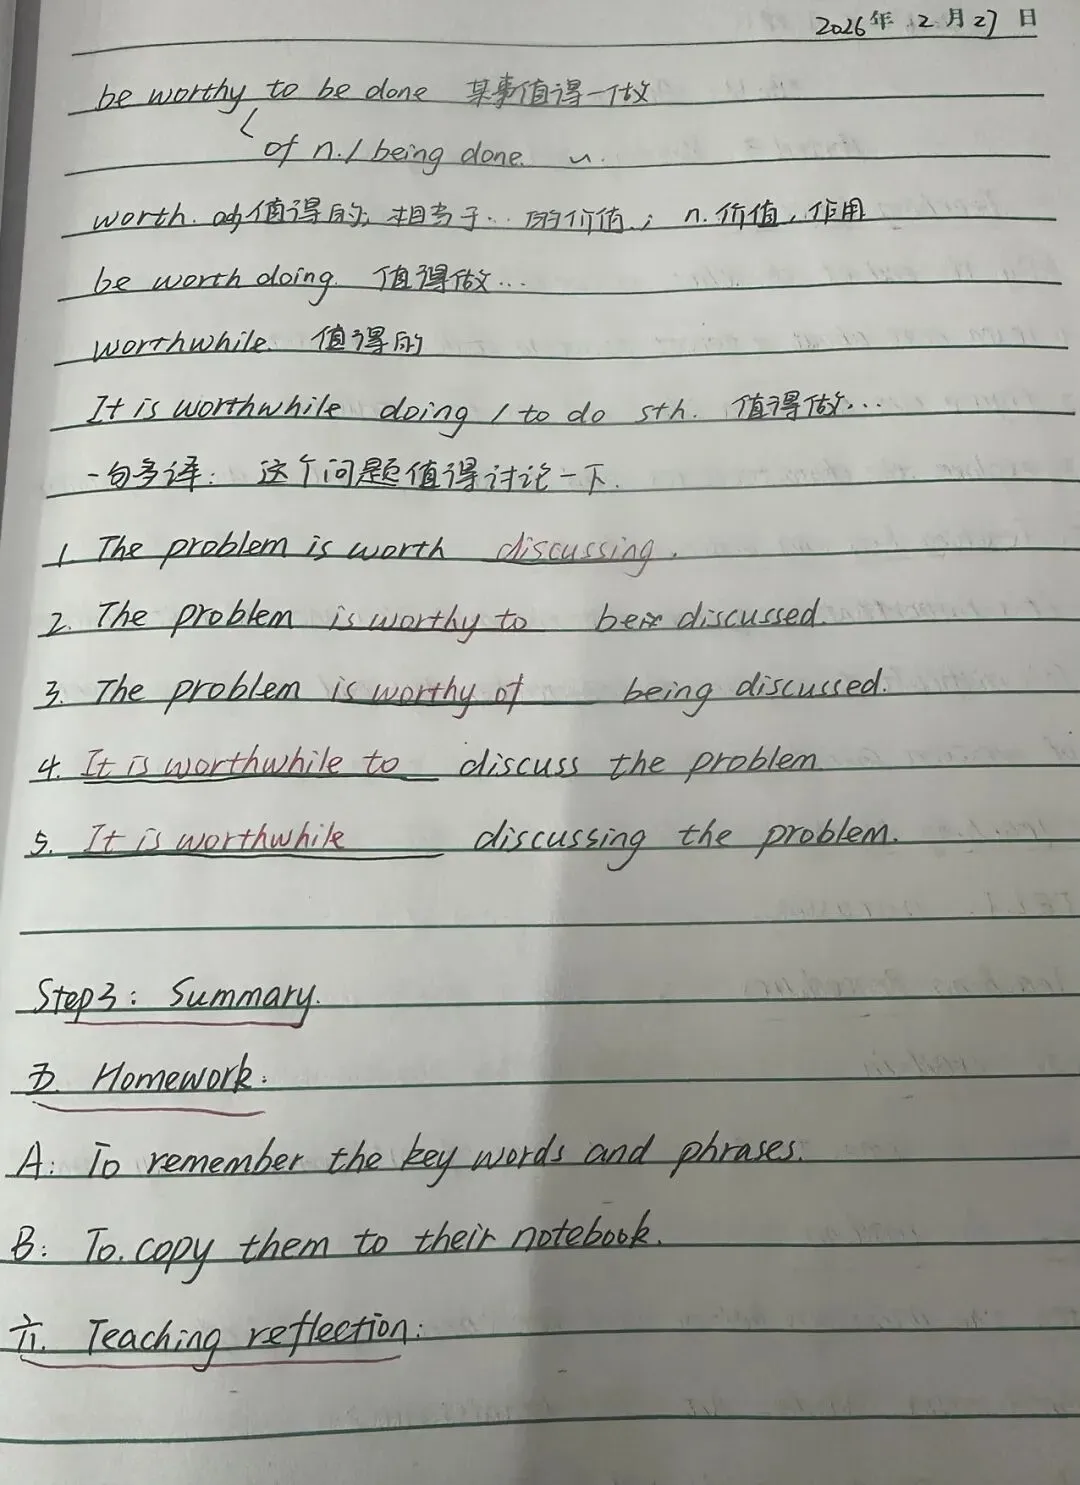 2026年 2月27日
be worthy to be done 某事值得一做
of n./ being done. ~.
worth. adj 值得的; 相当于… 的价值; n. 价值, 作用
be worth doing. 值得做…
worthwhile. 值得的
It is worthwhile doing / to do sth. 值得做…
一句多译: 这个问题值得讨论一下.
1. The problem is worth discussing.
2. The problem is worthy to be discussed.
3. The problem is worthy of being discussed.
4. It is worthwhile to discuss the problem
5. It is worthwhile discussing the problem.
Step3: Summary.
五. Homework:
A: To remember the key words and phrases.
B: To copy them to their notebook.
六. Teaching reflection: